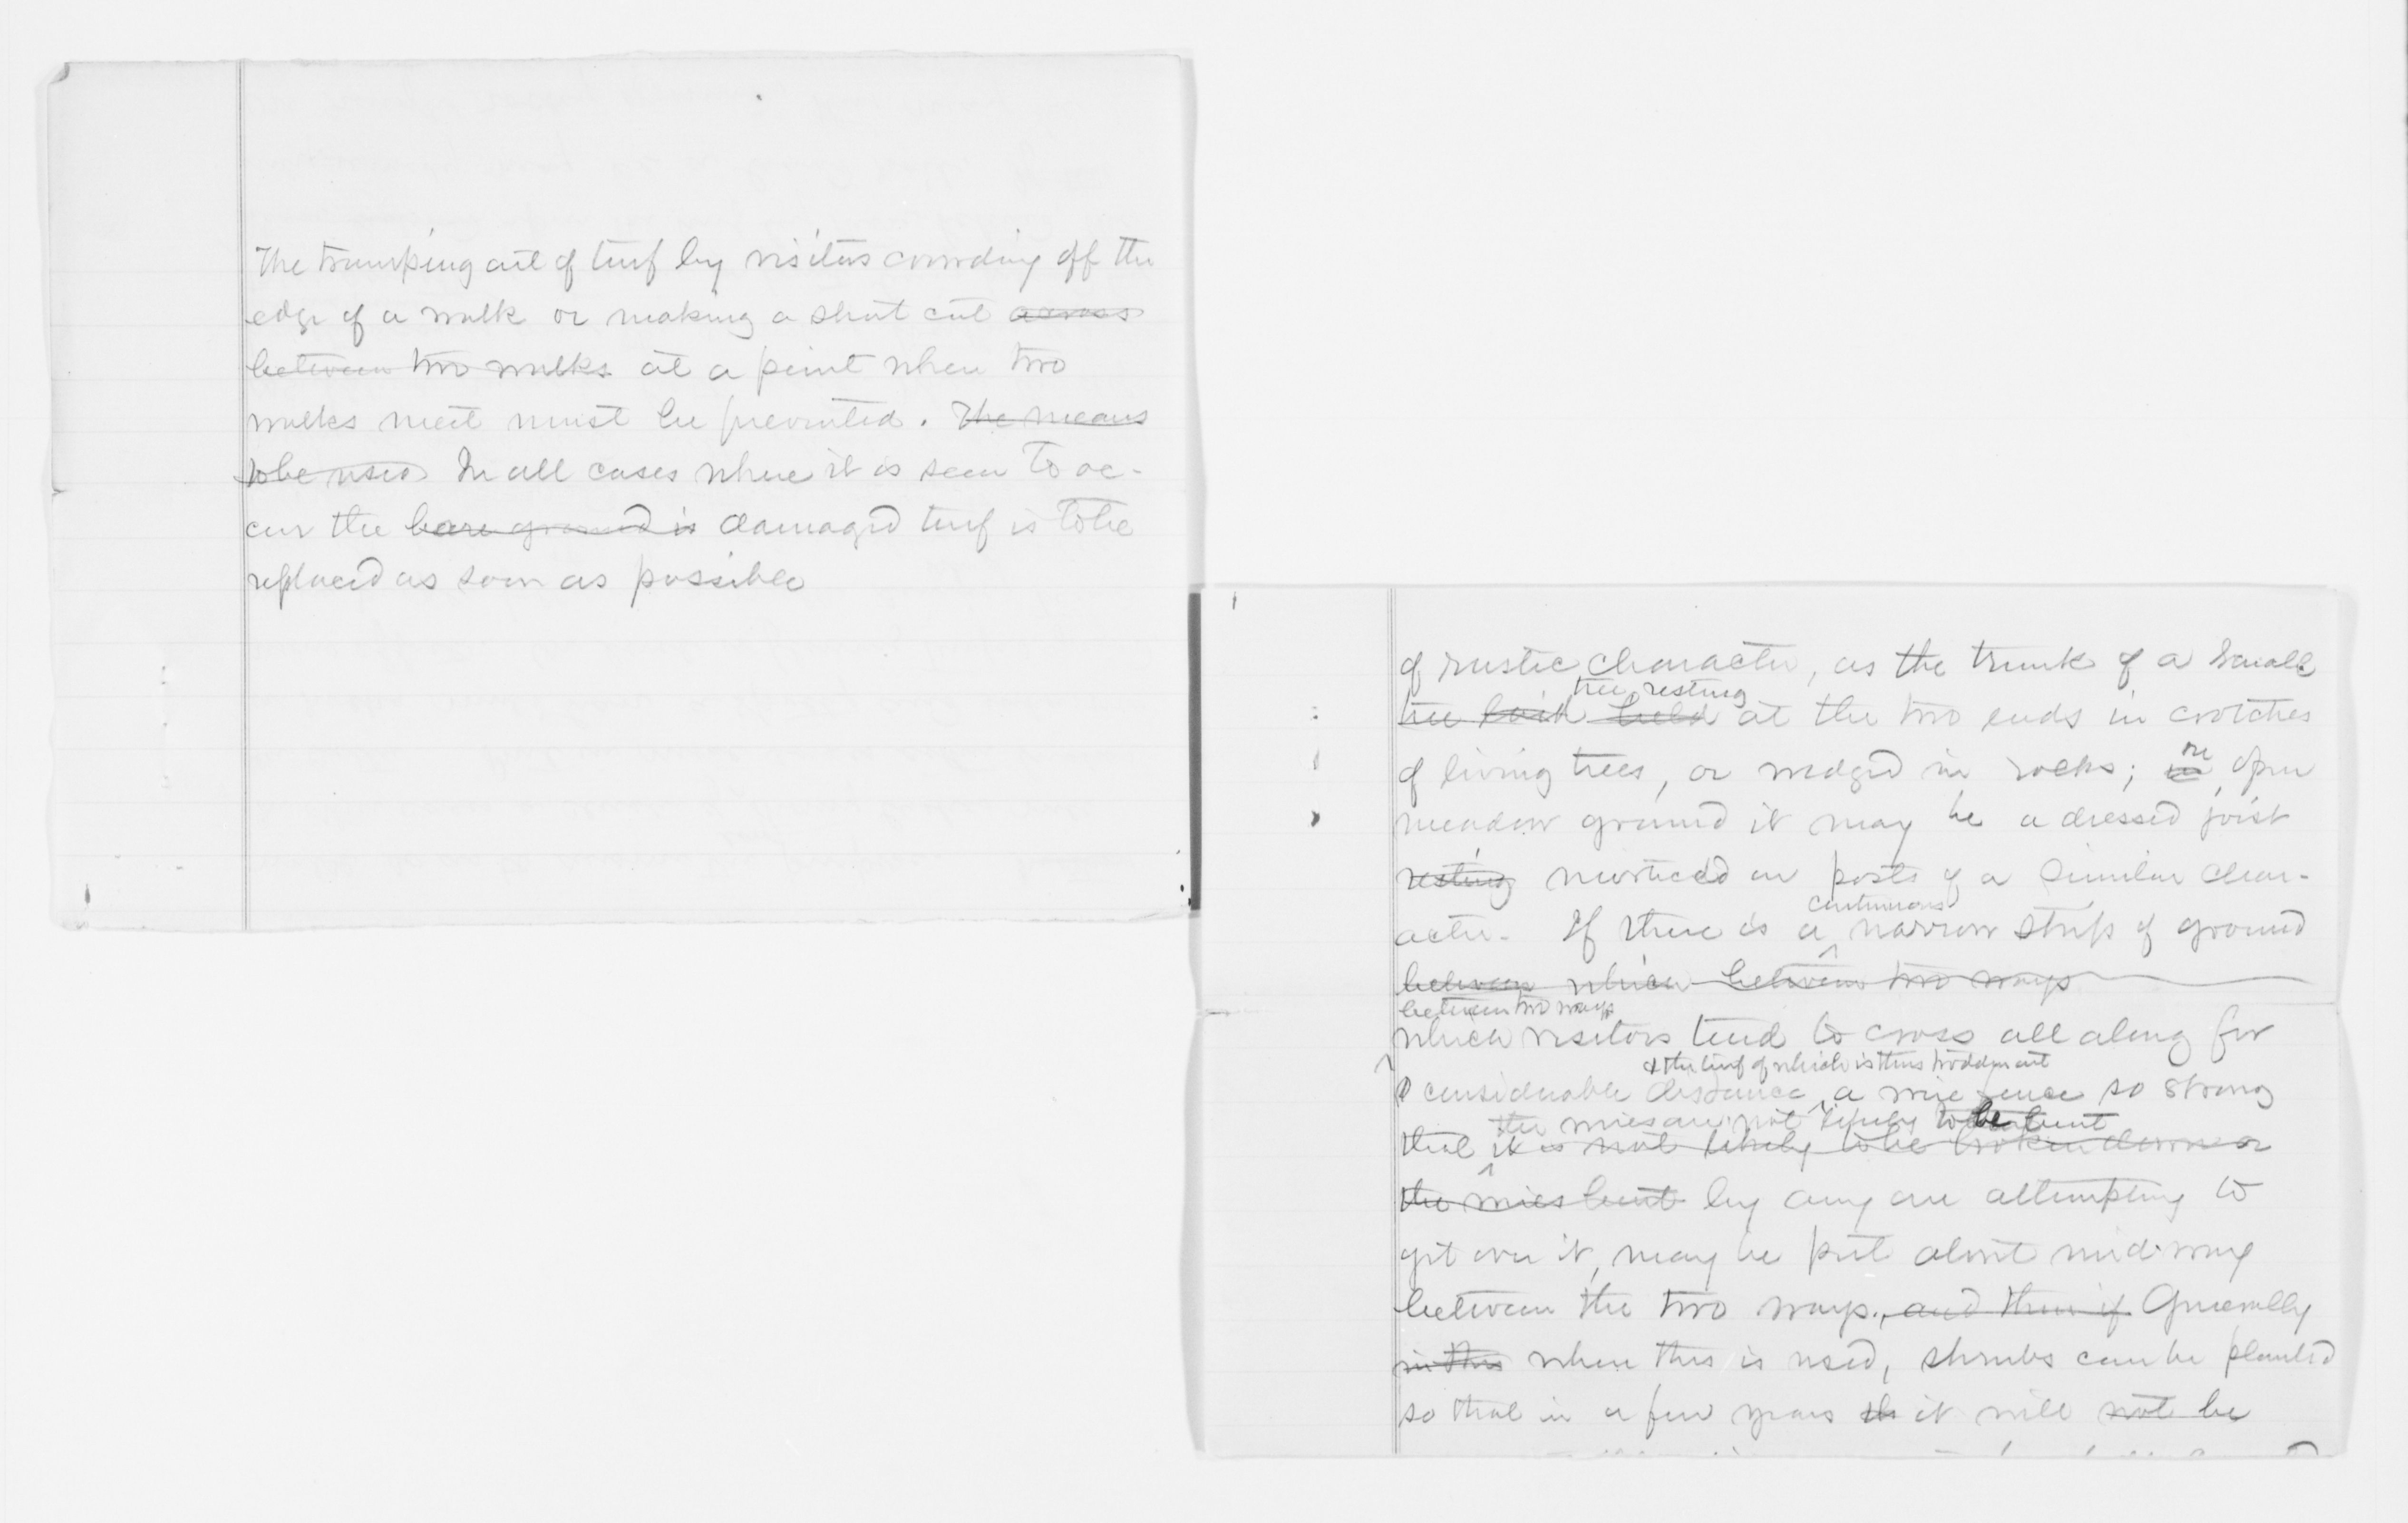 The tramping out of turf by visitors crowding off the
edge of a walk or making a short cut across
between two walks at a point when two
walks meet must be prevented. The means
to be used In all cases where it is seen to oc-
cur the bare ground is damaged turf is to be
replaced as soon as possible
of rustic character, as the trunk of a small
tree resting
tree laid held at the two ends in crotches
of living trees, or wedged in rocks; in open
on
meadow ground it may be a dressed joist
resting morticed on posts of a similar char-
continuous
acter. If there is a narrow strip of ground
between which between two ways
between two ways
which visitors tend to cross all along for
& the turf of which is thus trodden out
a considerable distance, a wire fence so strong
the wires are not likely to be bent
that it is not likely to be broken down or
the wires bent by any one attempting to
get over it, may be put about mid-way
between the two ways, and then if Generally
in this when this is used, shrubs can be planted
so that in a few years it will not be